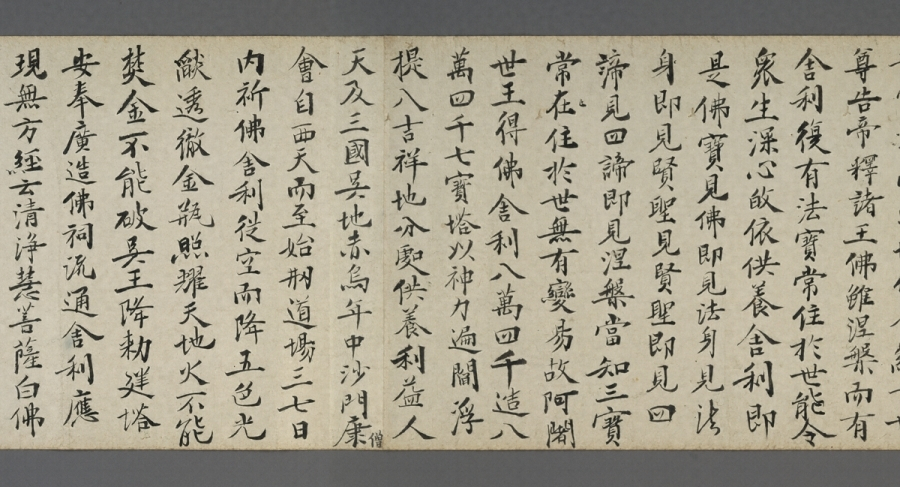 尊告帝釋諸王佛雖涅槃而有
舍利復有法寶常住於世能令
衆生深心敀依供養舍利即
是佛寶見佛即見法身見法
身即見賢聖見賢聖即見四
諦見四諦即見涅槃當知三寶
常在住於世無有變易故阿闍
世王得佛舍利八萬四千造八
萬四千七寶塔以神力遍閻浮
提八吉祥地分𭣣供養利益人
天及三國吳地赤烏年中沙門康僧
會自西天而至始刱道場三七日
内祈佛舍利從空而降五色光
燄透徹金瓶照耀天地火不能
焚金不能破吳王降勑建塔
安奉廣造佛祠流通舍利應
現無方經云清淨慧菩薩白佛